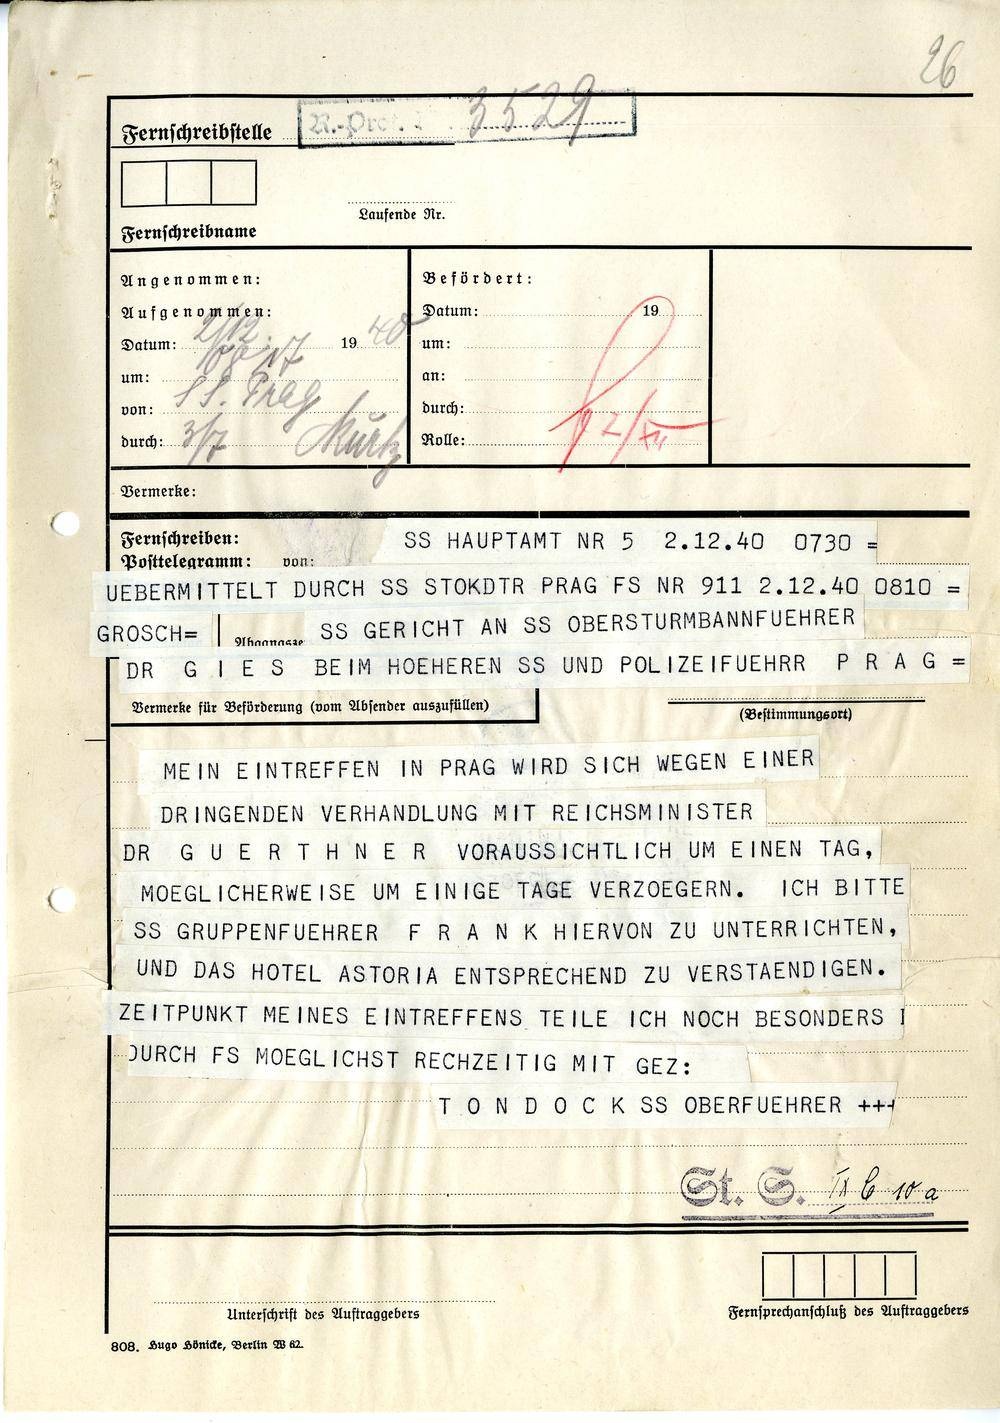 26
Fernschreibstelle R.-Prot. 3529
Laufende Nr.
Fernschreibname
Angenommen:
Aufgenommen:
Datum: 2/12. 19 40
um:
von: SS. Prag
durch: 3/7
Befördert:
Datum: 19
um:
an:
durch:
Rolle:
Vermerke:
Fernschreiben:
Posttelegramm: von:
SS HAUPTAMT NR 5 2.12.40 0730 =
UEBERMITTELT DURCH SS STOKDTR PRAG FS NR 911 2.12.40 0810 =
GROSCH= SS GERICHT AN SS OBERSTURMBANNFUEHRER
DR G I E S BEIM HOEHEREN SS UND POLIZEIFUEHRR P R A G =
Vermerke für Beförderung (vom Absender auszufüllen)
(Bestimmungsort)
MEIN EINTREFFEN IN PRAG WIRD SICH WEGEN EINER
DRINGENDEN VERHANDLUNG MIT REICHSMINISTER
DR G U E R T H N E R VORAUSSICHTLICH UM EINEN TAG,
MOEGLICHERWEISE UM EINIGE TAGE VERZOEGERN. ICH BITTE
SS GRUPPENFUEHRER F R A N K HIERVON ZU UNTERRICHTEN,
UND DAS HOTEL ASTORIA ENTSPRECHEND ZU VERSTAENDIGEN.
ZEITPUNKT MEINES EINTREFFENS TEILE ICH NOCH BESONDERS
DURCH FS MOEGLICHST RECHZEITIG MIT GEZ:
T O N D O C K SS OBERFUEHRER +++
St. S. IX C 10 a
Unterschrift des Auftraggebers
Fernsprechanschluß des Auftraggebers
808. Hugo Hönicke, Berlin W 62.